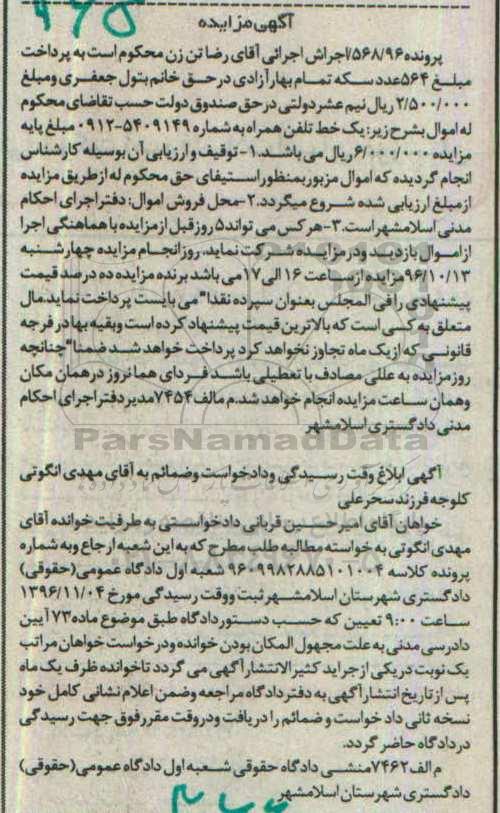 آگهی مزایده
پرونده ۵۶۸/۹۶/اجراش اجرائی آقای رضا تن زن محکوم است به پرداخت
مبلغ ۵۶۴عدد سکه تمام بهار آزادی درحق خانم بتول جعفری ومبلغ
۲/۵۰۰/۰۰۰ ریال نیم عشر دولتی درحق صندوق دولت حسب تقاضای محکوم
له اموال بشرح زیر: یک خط تلفن همراه به شماره ۵۴۰۹۱۴۹-۰۹۱۲ مبلغ پایه
مزایده ۶/۰۰۰/۰۰۰ ریال می باشد.۱- توقیف و ارزیابی آن بوسیله کارشناس
انجام گردیده که اموال مزبور بمنظور استیفای حق محکوم له از طریق مزایده
از مبلغ ارزیابی شده شروع میگردد.۲-محل فروش اموال: دفتر اجرای احکام
مدنی اسلامشهر است.۳-هر کس می تواند ۵ روز قبل از مزایده با هماهنگی اجرا
از اموال بازدید ودر مزایده شرکت نماید. روز انجام مزایده چهارشنبه
۹۶/۱۰/۱۳مزایده از ساعت ۱۶ الی ۱۷ می باشد برنده مزایده ده درصد قیمت
پیشنهادی را فی المجلس بعنوان سپرده نقدا" می بایست پرداخت نماید.مال
متعلق به کسی است که بالاترین قیمت پیشنهاد کرده است وبقیه بها در فرجه
قانونی که از یک ماه تجاوز نخواهد کرد پرداخت خواهد شد ضمنا" چنانچه
روز مزایده به عللی مصادف با تعطیلی باشد فردای همانروز در همان مکان
وهمان ساعت مزایده انجام خواهد شد.م مالف ۷۴۵۴مدیر دفتر اجرای احکام
مدنی دادگستری اسلامشهر
ParsNamadData
آگهی ابلاغ وقت رسیدگی ودادخواست وضمائم به آقای مهدی انگوتی
کلوجه فرزند سحرعلی
خواهان آقای امیرحسین قربانی دادخواستی به طرفیت خوانده آقای
مهدی انگوتی به خواسته مطالبه طلب مطرح که به این شعبه ارجاع وبه شماره
پرونده کلاسه ۹۶۰۹۹۸۲۸۸۵۱۰۱۰۰۴ شعبه اول دادگاه عمومی(حقوقی)
دادگستری شهرستان اسلامشهر ثبت ووقت رسیدگی مورخ ۱۳۹۶/۱۱/۰۴
ساعت ۹:۰۰ تعیین که حسب دستور دادگاه طبق موضوع ماده ۷۳آیین
دادرسی مدنی به علت مجهول المکان بودن خوانده ودرخواست خواهان مراتب
یک نوبت در یکی از جراید کثیرالانتشار آگهی می گردد تا خوانده ظرف یک ماه
پس از تاریخ انتشار آگهی به دفتر دادگاه مراجعه وضمن اعلام نشانی کامل خود
نسخه ثانی داد خواست و ضمائم را دریافت ودر وقت مقرر فوق جهت رسیدگی
در دادگاه حاضر گردد.
م الف ۷۴۶۲منشی دادگاه حقوقی شعبه اول دادگاه عمومی(حقوقی)
دادگستری شهرستان اسلامشهر